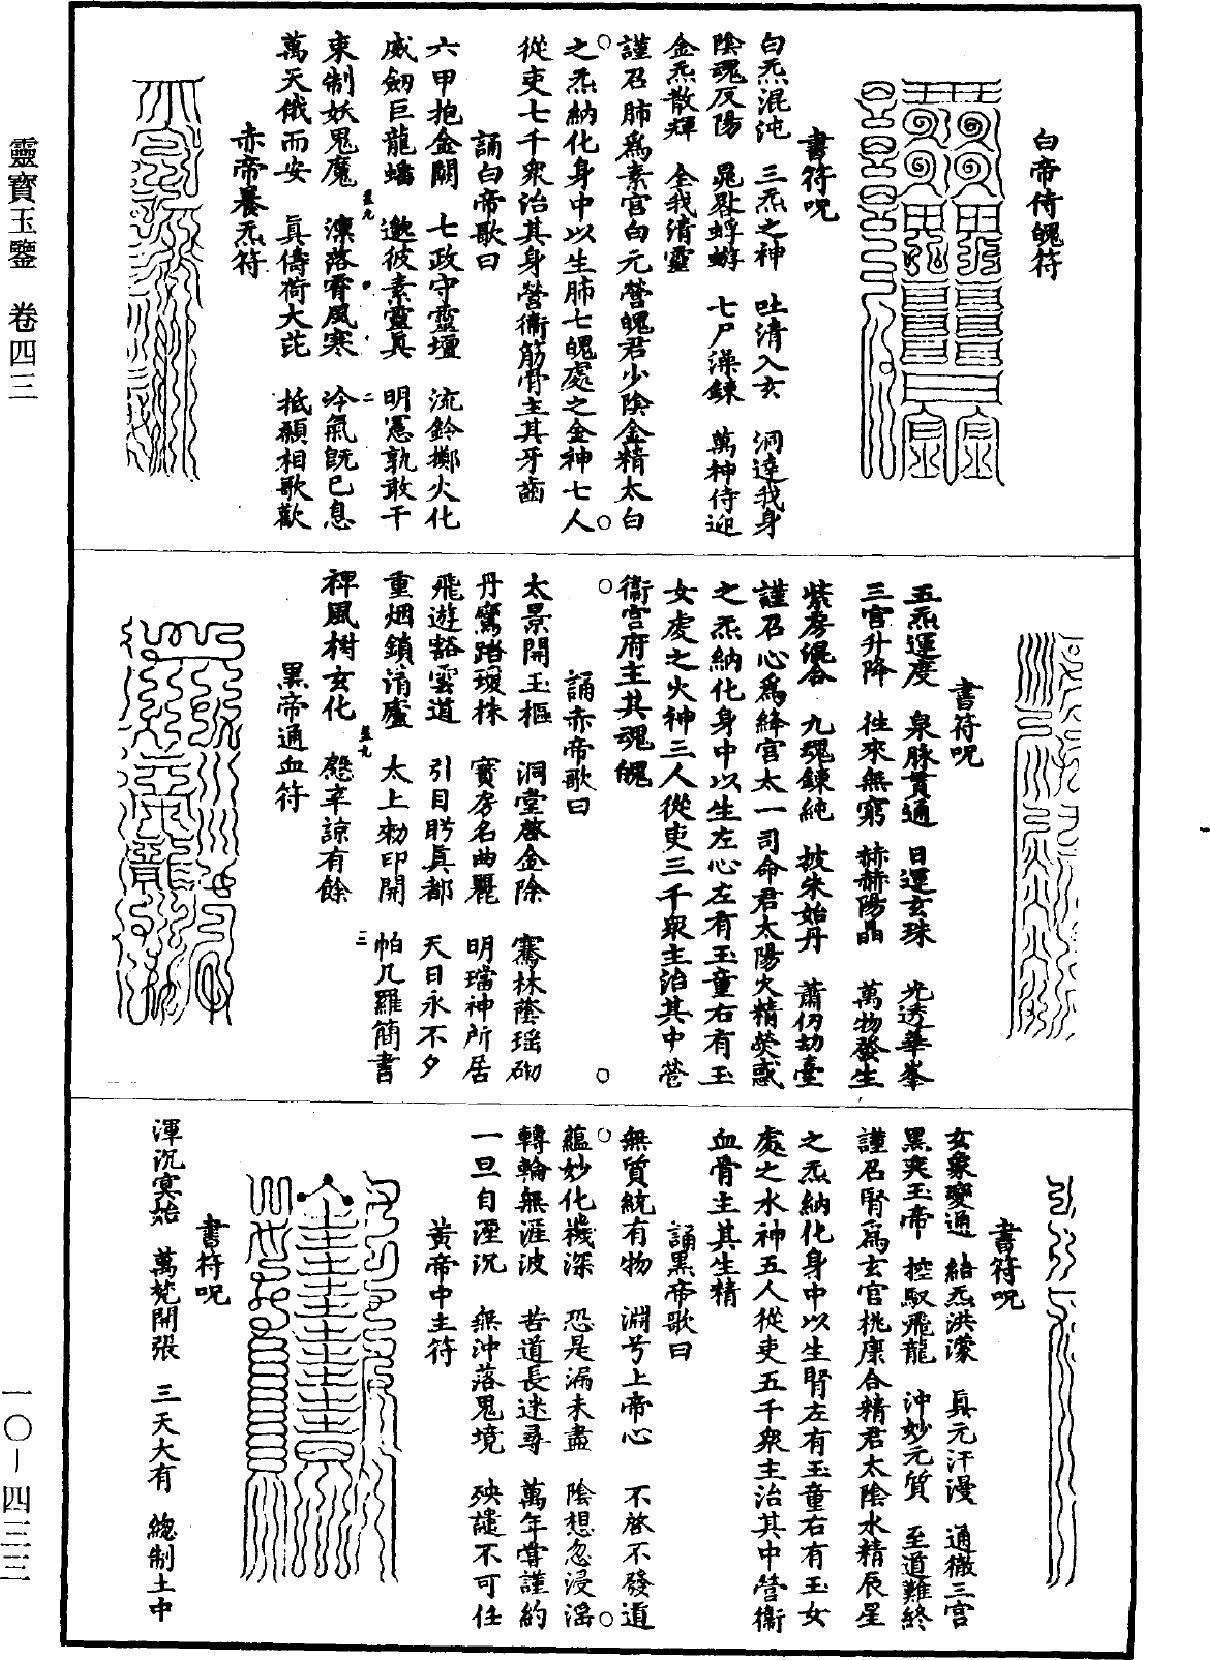 靈寶玉鑒　卷四三
一〇—四三三
白帝侍魄符
書符呪
白炁混沌　三炁之神　吐清入玄　洞達我身
陰魂反陽　晃晷蜱蝣　七尸澡鍊　萬神侍迎
金炁散輝　全我清靈
謹召肺爲素官白元營魄君少陰金精太白
之炁納化身中以生肺七魄處之金神七人
從吏七千衆治其身營衞筋骨主其牙齒
誦白帝歌曰
六甲抱金關　七政守靈壇　流鈴擲火化
威劒巨龍蟠　邀彼素靈眞　明憲孰敢干
束制妖鬼魔　澟落霄風寒　冷氣旣已息
萬天俄而安　眞儔荷大芘　柢願相歌歡
赤帝養炁符
書符呪
五炁運度　泉脉貫通　日運玄珠　光透華峯
三宮升降　往來無窮　赫赫陽晶　萬物發生
紫房混合　九魂鍊純　披朱始丹　蕭仞劫臺
謹召心爲絳官太一司命君太陽火精熒惑
之炁納化身中以生左心左有玉童右有玉
女處之火神三人從吏三千衆主治其中營
衞宮府主其魂魄
誦赤帝歌曰
太景開玉樞　洞堂啓金除　騫林蔭瑶砌
丹鸞踏瓊株　寶房名曲麗　明璫神所居
飛遊豁雲道　引目眄眞都　天日永不夕
重烟鎖清廬　太上勑印開　帕几羅簡書
裨風樹玄化　慇辛諒有餘
黒帝通血符
書符呪
玄衆變通　結炁洪濛　眞元汗漫　通徹三宮
黑爽玉帝　控馭飛龍　沖妙元質　至道難終
謹召腎爲玄官桃康合精君太陰水精辰星
之炁納化身中以生腎左有玉童右有玉女
處之水神五人從吏五千衆主治其中營衞
血骨主其生精
誦黑帝歌曰
無質統有物　淵兮上帝心　不啓不發道
蘊妙化機深　恐是漏未盡　陰想忽浸淫
轉輪無涯波　苦道長迷尋　萬年嘗謹約
一旦自湮沉　無沖落鬼境　殃譴不可任
黃帝中主符
書符呪
渾沉寞始　萬梵開張　三天大有　總制土中